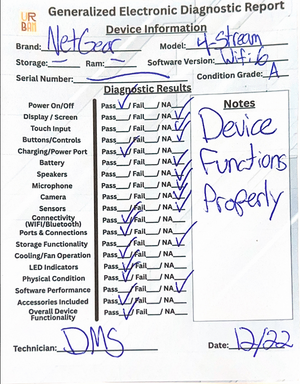 UR
BAN
Generalized Electronic Diagnostic Report
Device Information
Brand: NetGear Model: 4-Stream
Storage: — Ram: — Software Version: Wifi 6
Serial Number: — Condition Grade: A
Diagnostic Results
Power On/Off Pass✓/ Fail__/ NA__
Display / Screen Pass__/ Fail__/ NA✓
Touch Input Pass__/ Fail__/ NA✓
Buttons/Controls Pass__/ Fail__/ NA✓
Charging/Power Port Pass✓/ Fail__/ NA__
Battery Pass__/ Fail__/ NA✓
Speakers Pass__/ Fail__/ NA✓
Microphone Pass__/ Fail__/ NA✓
Camera Pass__/ Fail__/ NA✓
Sensors Pass__/ Fail__/ NA✓
Connectivity
(WIFI/Bluetooth) Pass✓/ Fail__/ NA__
Ports & Connections Pass✓/ Fail__/ NA__
Storage Functionality Pass__/ Fail__/ NA✓
Cooling/Fan Operation Pass✓/ Fail__/ NA__
LED Indicators Pass✓/ Fail__/ NA__
Physical Condition Pass✓/ Fail__/ NA__
Software Performance Pass__/ Fail__/ NA✓
Accessories Included Pass✓/ Fail__/ NA__
Overall Device
Functionality Pass✓/ Fail__/ NA__
Notes
Device
Functions
Properly
Technician: DMS Date: 12/22